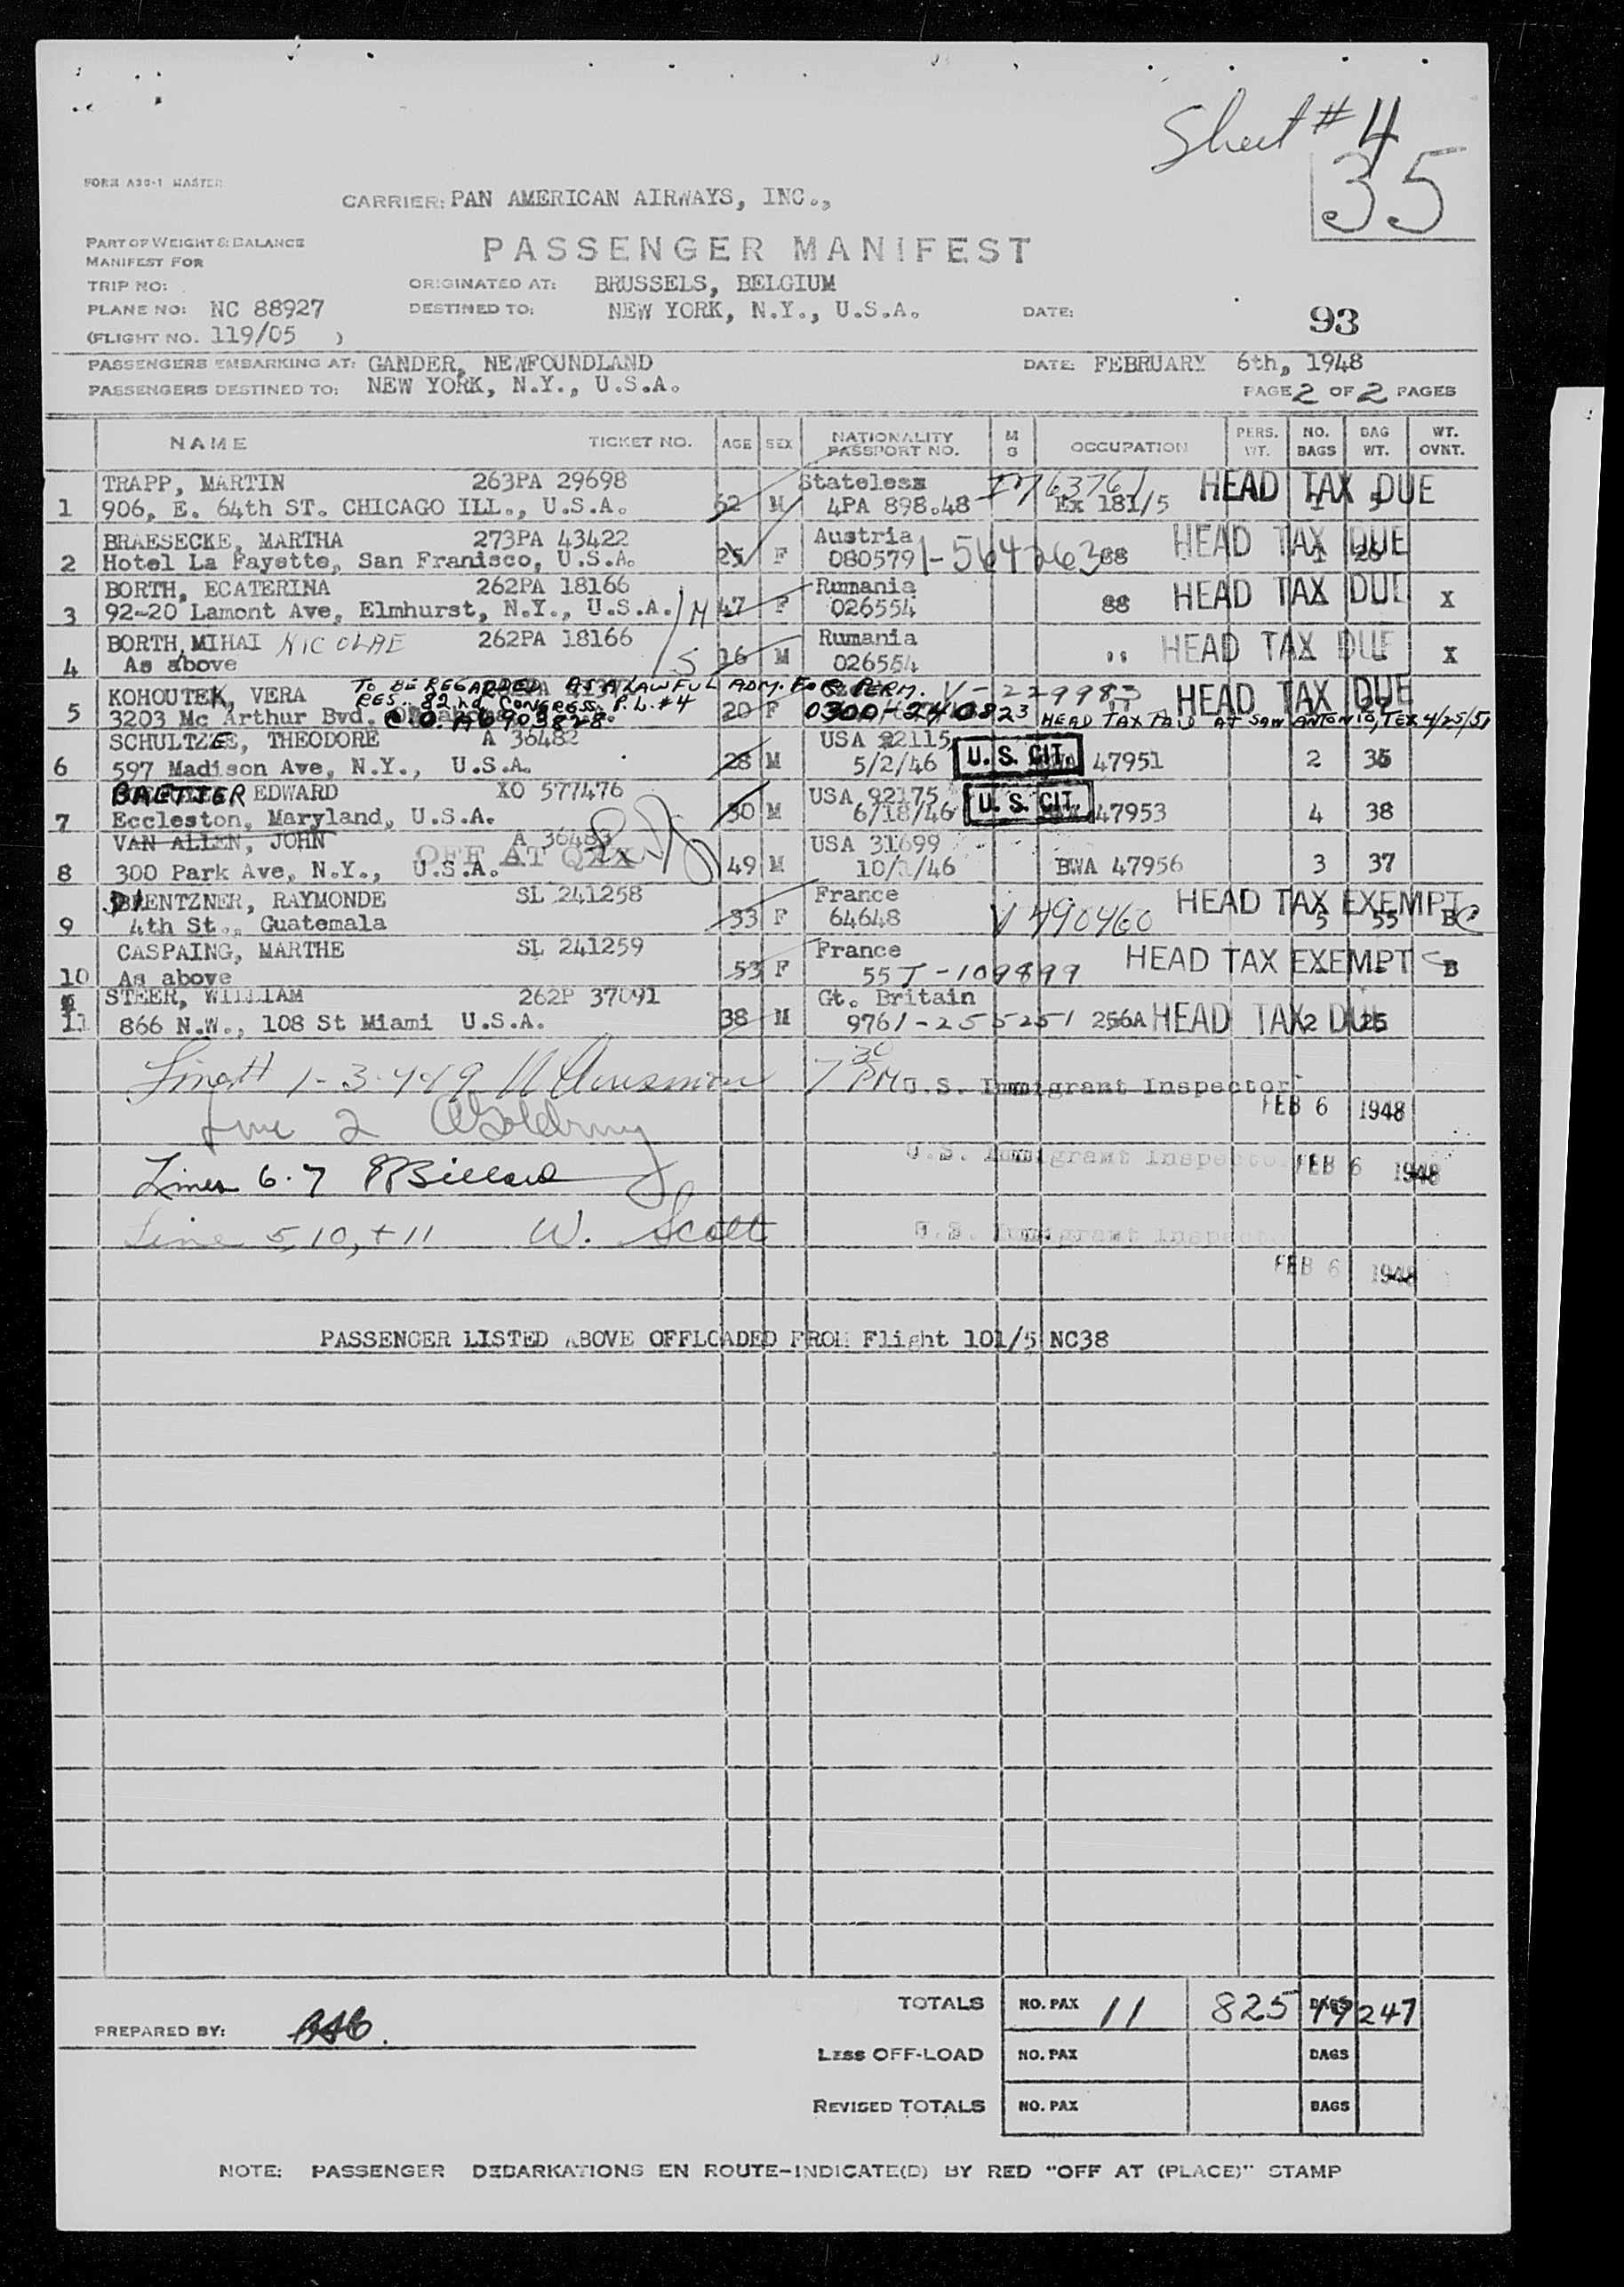 Sheet # 4
35
FORM A30-1 MASTER
CARRIER: PAN AMERICAN AIRWAYS, INC.,
PART OF WEIGHT & BALANCE
MANIFEST FOR
PASSENGER MANIFEST
TRIP NO:
ORIGINATED AT: BRUSSELS, BELGIUM
PLANE NO: NC 88927
DESTINED TO: NEW YORK, N.Y., U.S.A.
DATE:
93
(FLIGHT NO. 119/05 )
PASSENGERS EMBARKING AT: GANDER, NEWFOUNDLAND
DATE: FEBRUARY 6th, 1948
PASSENGERS DESTINED TO: NEW YORK, N.Y., U.S.A.
PAGE 2 OF 2 PAGES
NAME TICKET NO. AGE SEX NATIONALITY PASSPORT NO. M G OCCUPATION PERS. WT. NO. BAGS BAG WT. WT. OVNT.
TRAPP, MARTIN 263PA 29698 Stateless HEAD TAX DUE
1 906, E. 64th ST. CHICAGO ILL., U.S.A. 62 M 4PA 898.48 Ex 181/5 1 5
BRAESECKE, MARTHA 273PA 43422 Austria HEAD TAX DUE
2 Hotel La Fayette, San Franisco, U.S.A. 25 F 080579 1-564263 88 1 26
BORTH, ECATERINA 262PA 18166 Rumania HEAD TAX DUE
3 92-20 Lamont Ave, Elmhurst, N.Y., U.S.A. M 47 F 026554 88 X
BORTH, MIHAI NICOLAE 262PA 18166 Rumania HEAD TAX DUE
4 As above S 16 M 026554 " X
TO BE REGARDED AS A LAWFUL ADM. FOR PERM. V-229983 HEAD TAX DUE
KOHOUTEK, VERA RES. 82nd CONGRESS. P.L. #4
5 3203 Mc Arthur Bvd. C.O. A6903828 20 F 0300-240823 HEAD TAX PAID AT SAN ANTONIO, TEX 4/25/51
SCHULTZE, THEODORE A 36482 USA 92115
6 597 Madison Ave, N.Y., U.S.A. 28 M 5/2/46 U. S. CIT. 47951 2 36
BAETJER EDWARD XO 577476 USA 92175
7 Eccleston, Maryland, U.S.A. 30 M 6/18/46 U. S. CIT. 47953 4 38
VAN ALLEN, JOHN A 36483 USA 31699
OFF AT QXX
8 300 Park Ave, N.Y., U.S.A. 49 M 10/ /46 BWA 47956 3 37
ENTZNER, RAYMONDE SL 241258 France HEAD TAX EXEMPT
9 4th St., Guatemala 33 F 64648 V 490460 5 55 B
CASPAING, MARTHE SL 241259 France HEAD TAX EXEMPT
10 As above 53 F 55 I-109899 B
STEER, WILLIAM 262P 37091 Gt. Britain
11 866 N.W., 108 St Miami U.S.A. 38 M 976 1-255251 256A HEAD TAX DUE 2 25
7 30 PM U.S. Immigrant Inspector
FEB 6 1948
Line 2
U.S. Immigrant Inspector FEB 6 1948
Lines 6-7
Line 5, 10, + 11 W. Scott
U.S. Immigrant Inspector
FEB 6 1948
PASSENGER LISTED ABOVE OFFLOADED FROM Flight 101/5 NC38
TOTALS NO. PAX 11 825 BAGS 19 247
PREPARED BY:
LESS OFF-LOAD NO. PAX BAGS
REVISED TOTALS NO. PAX BAGS
NOTE: PASSENGER DEBARKATIONS EN ROUTE-INDICATE(D) BY RED "OFF AT (PLACE)" STAMP